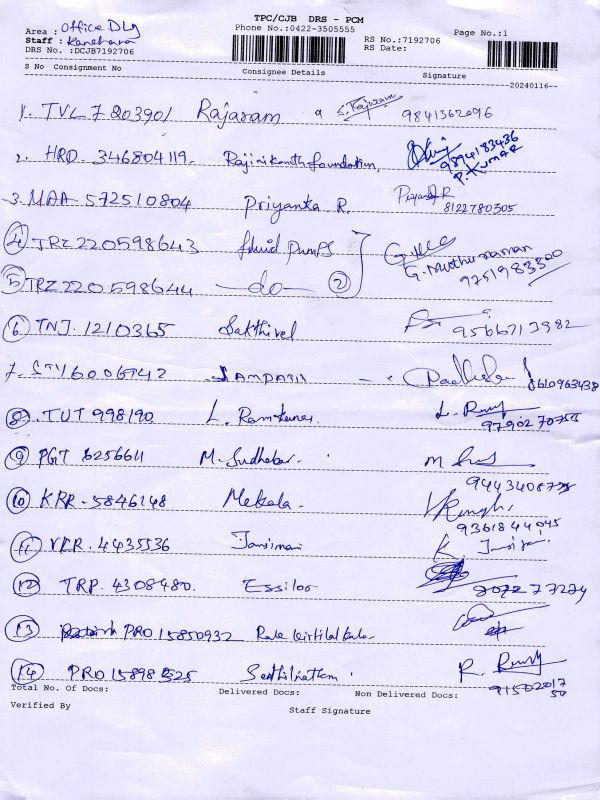 TPC/CJB DRS - PCM
Area : Office Dlg Phone No.:0422-3505555 Page No.:1
Staff : Kanchana RS No.:7192706
DRS No.:DCJB7192706 RS Date:
S No Consignment No Consignee Details Signature
20240116
1. TVL 7203901 Rajaram S. Rajaram 9841362096
2. HRD 346804119. Rajinikanth foundation, 9894183436
P. KUMAR
3. MAA 572510804 Priyanka R. Priyanka R
8122780305
4 TRZ 220598643 fluid pumps
G. Muthuraman
5 TRZ 220598644 —do— 2 9751983300
6 TNJ. 1210365 Sakthivel
7. 8610963438
8. TUT 998190 L. Ramkumar L.
9 PGT 6256611 M. Sudhakar. M
10 KRR. 5846148 Mekala.
9361844045
11 4435536 K.
12 TRP. 4308480. Essilor
13 PRO 15850932
14 PRO 15898525 Senthilnathan. R.
Total No. Of Docs: Delivered Docs: Non Delivered Docs:
Verified By Staff Signature